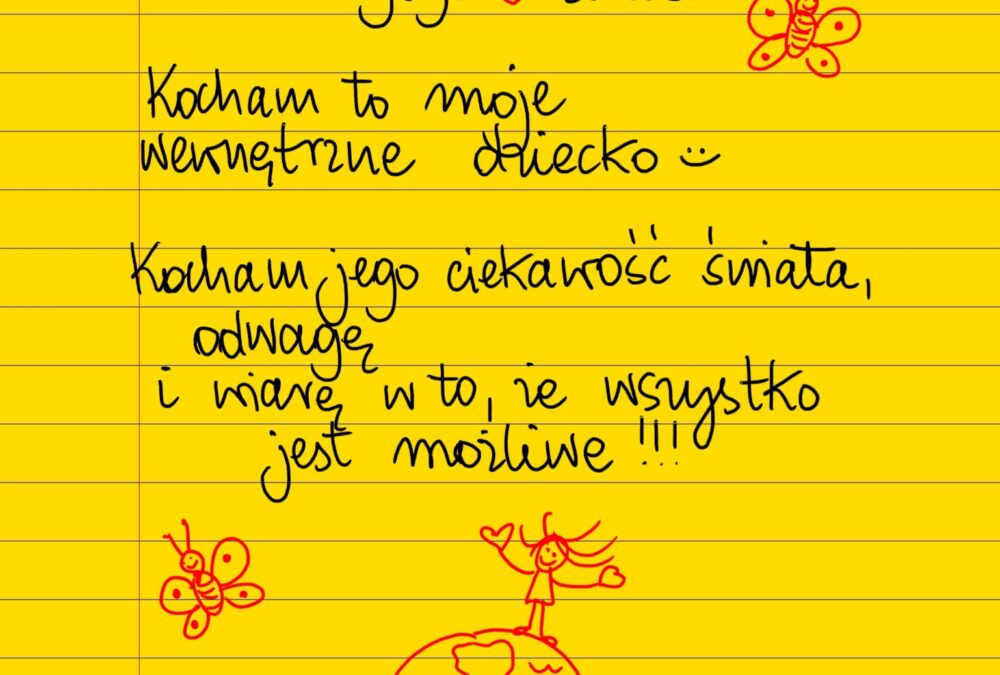 Kocham to moje
wewnętrzne dziecko
Kocham jego ciekawość świata,
odwagę
i wiarę w to, że wszystko
jest możliwe !!!